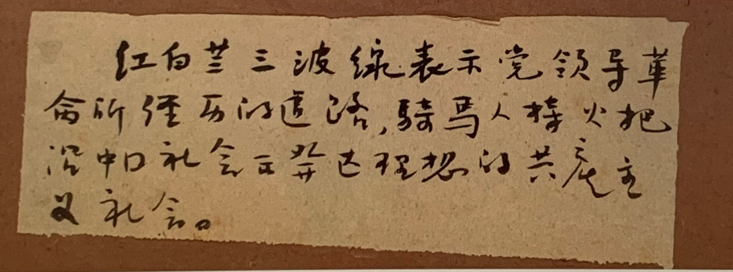 红白兰三波線表示党领导革
命所经历的道路,骑馬人持火把
沿中囗社会而奔达理想的共产主
义社会。